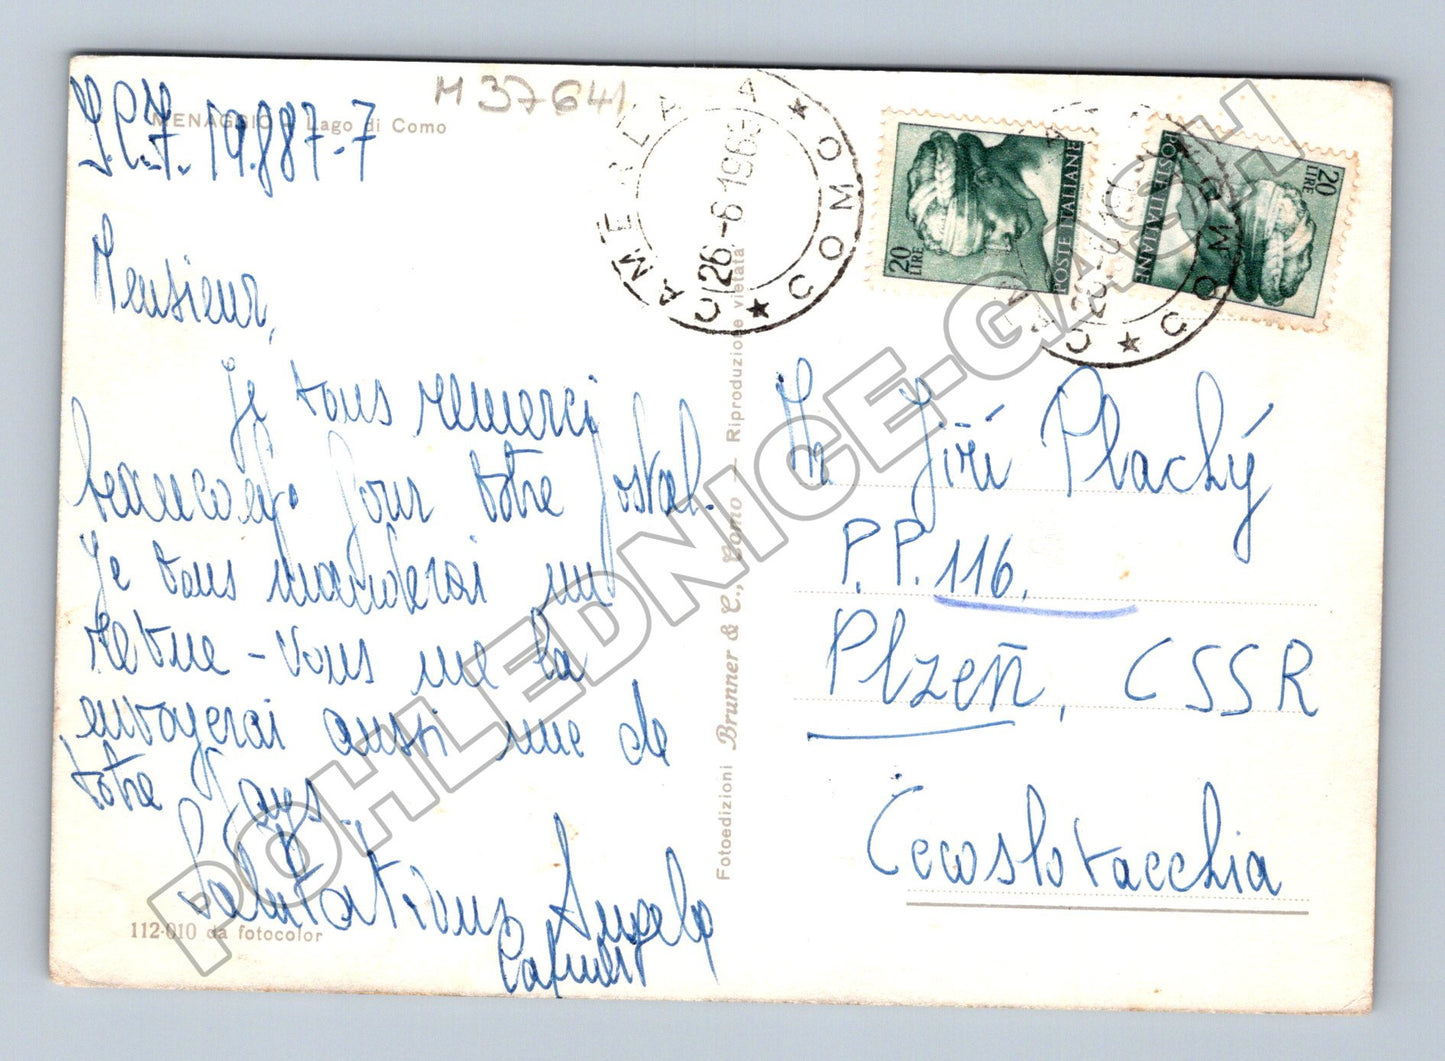 M 37641
MENAGGIO - Lago di Como
19.887-7
Monsieur,
Je vous remerci
beaucoup pour votre postal.
Je vous manderai un
revue - Vous me la
envoyerai aussi une de
votre Pays.
Salutations Angelo
CAMERLATA
COMO
26-6-1965
20 LIRE
POSTE ITALIANE
20 LIRE
POSTE ITALIANE
CAMERLATA
COMO
Fotoedizioni Brunner & C., Como — Riproduzione vietata
Mr Jiří Plachý
P.P. 116.
Plzeň, CSSR
Cecoslovacchia
112-010 da fotocolor
POHLEDNICE-GASH